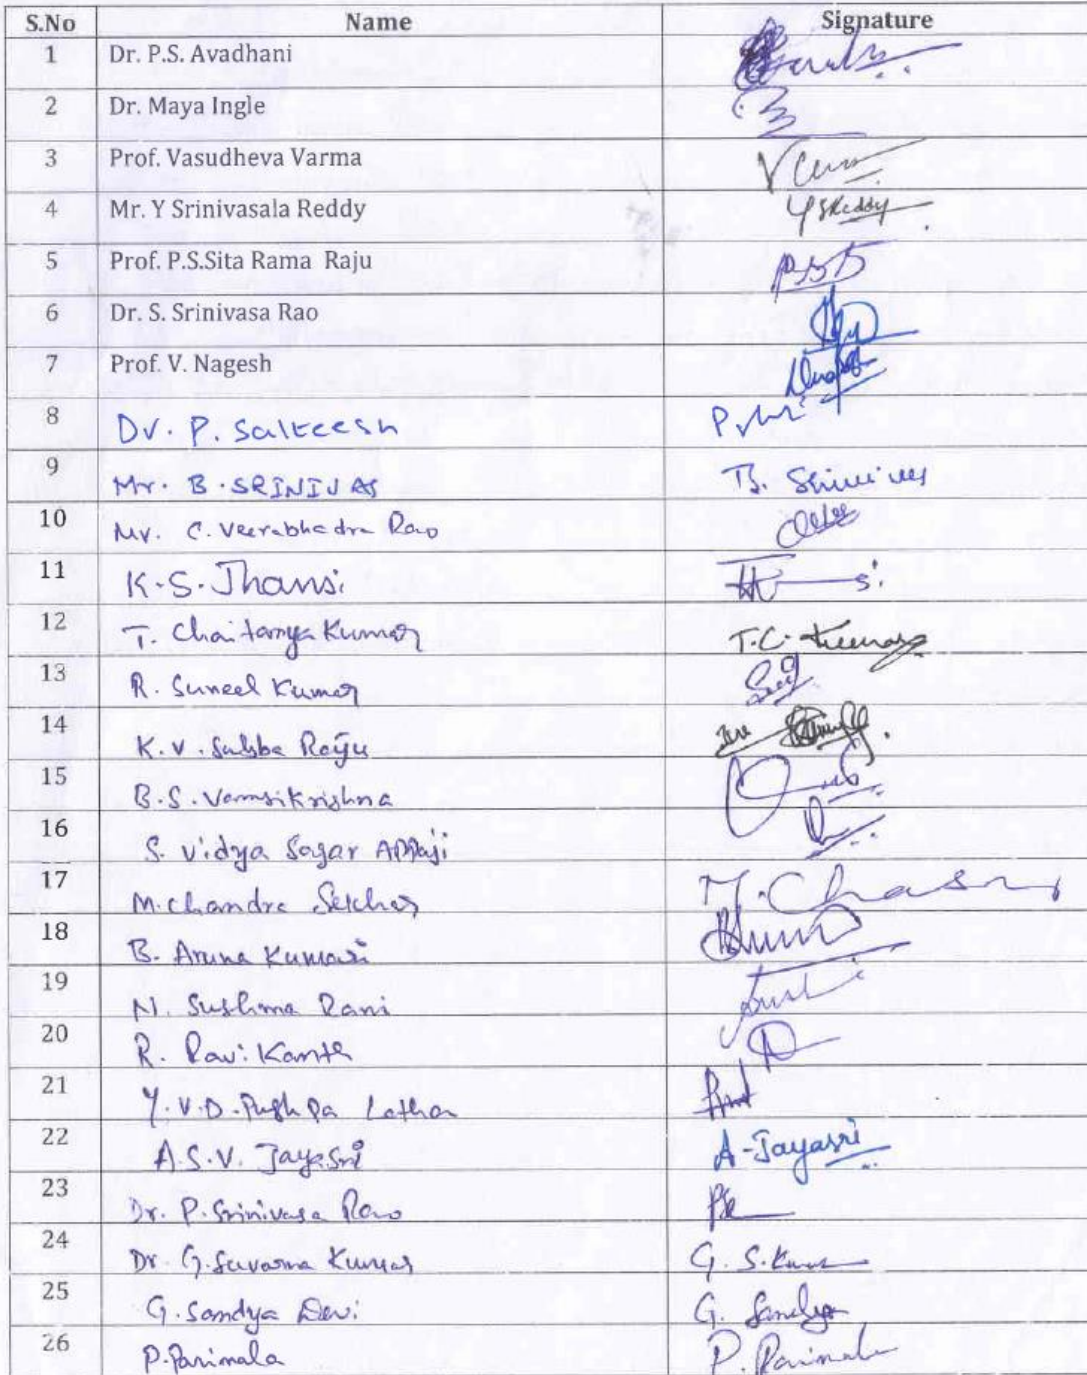 S.No Name Signature
1 Dr. P.S. Avadhani
2 Dr. Maya Ingle
3 Prof. Vasudheva Varma
4 Mr. Y Srinivasala Reddy YSReddy
5 Prof. P.S.Sita Rama Raju
6 Dr. S. Srinivasa Rao
7 Prof. V. Nagesh
8 Dr. P. Satteesh
9 Mr. B. SRINIVAS B. Srinivas
10 Mr. C. Veerabhadra Rao
11 K.S. Jhansi
12 T. Chaitanya Kumar T.C. Kumar
13 R. Suneel Kumar
14 K.V. Subba Raju
15 B.S. Vamsikrishna
16 S. Vidya Sagar APPaji
17 M. Chandra Sekhar
18 B. Aruna Kumari
19 N. Sushma Rani
20 R. Ravi Kanth
21 Y.V.D. Pushpa Latha
22 A.S.V. Jayasri A-Jayasri
23 Dr. P. Srinivasa Rao
24 Dr G. Suvarna Kumar G. S. Kumar
25 G. Sandya Devi G. Sandya
26 P. Parimala P. Parimala